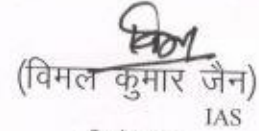 (विमल कुमार जैन)
IAS